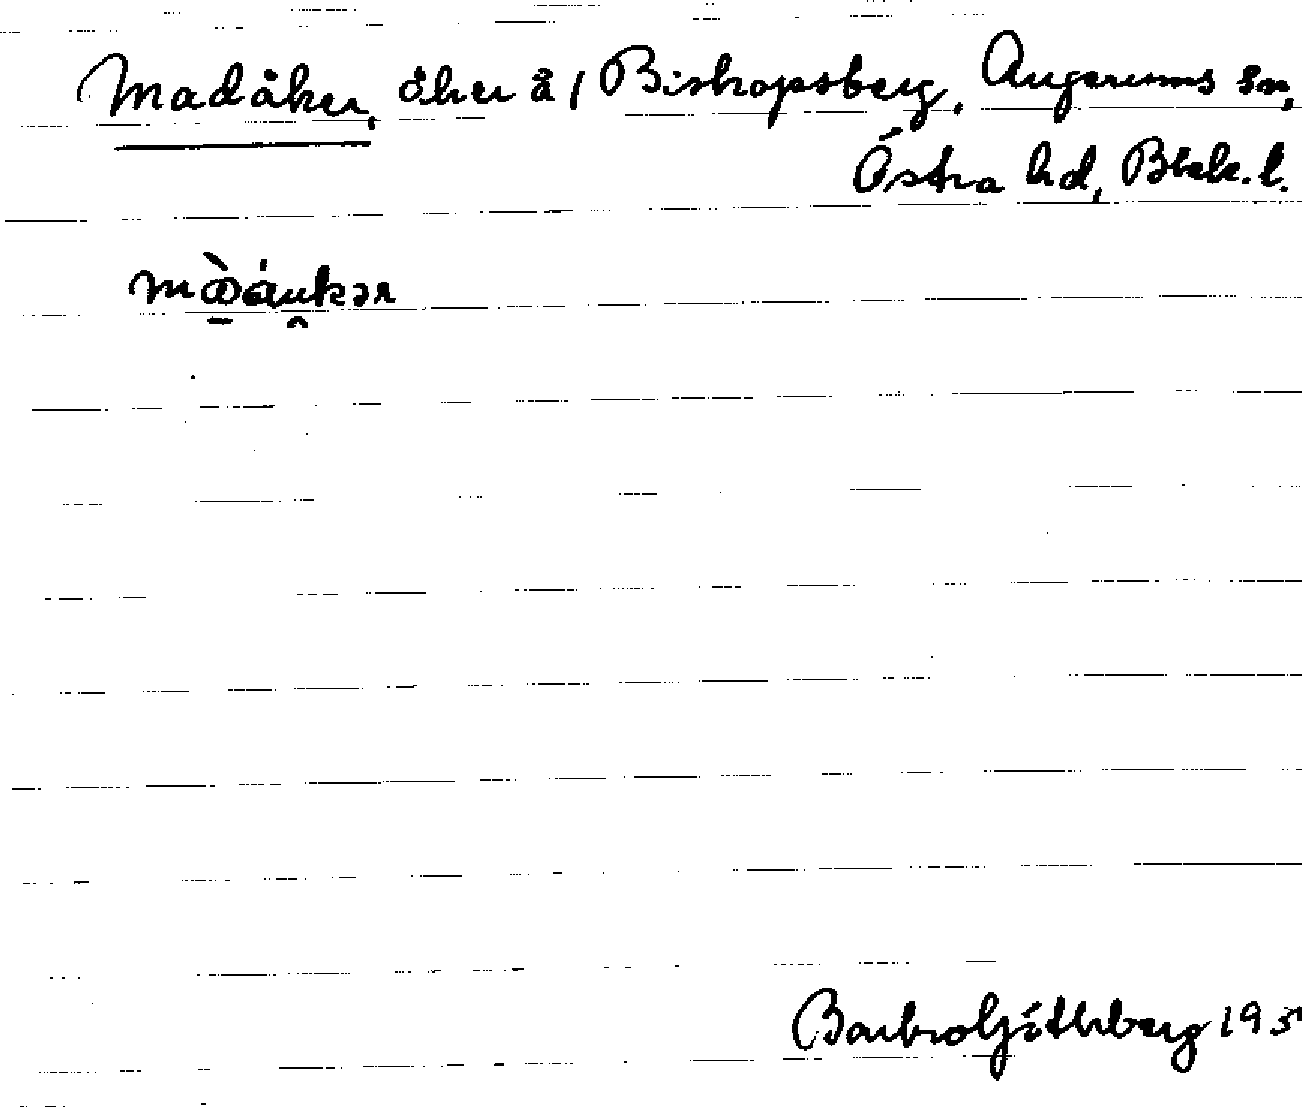 Madåker, åker å / Biskopsberg, Augerums sn,
Östra hd, Blek. l.
Barbro Göthberg 195